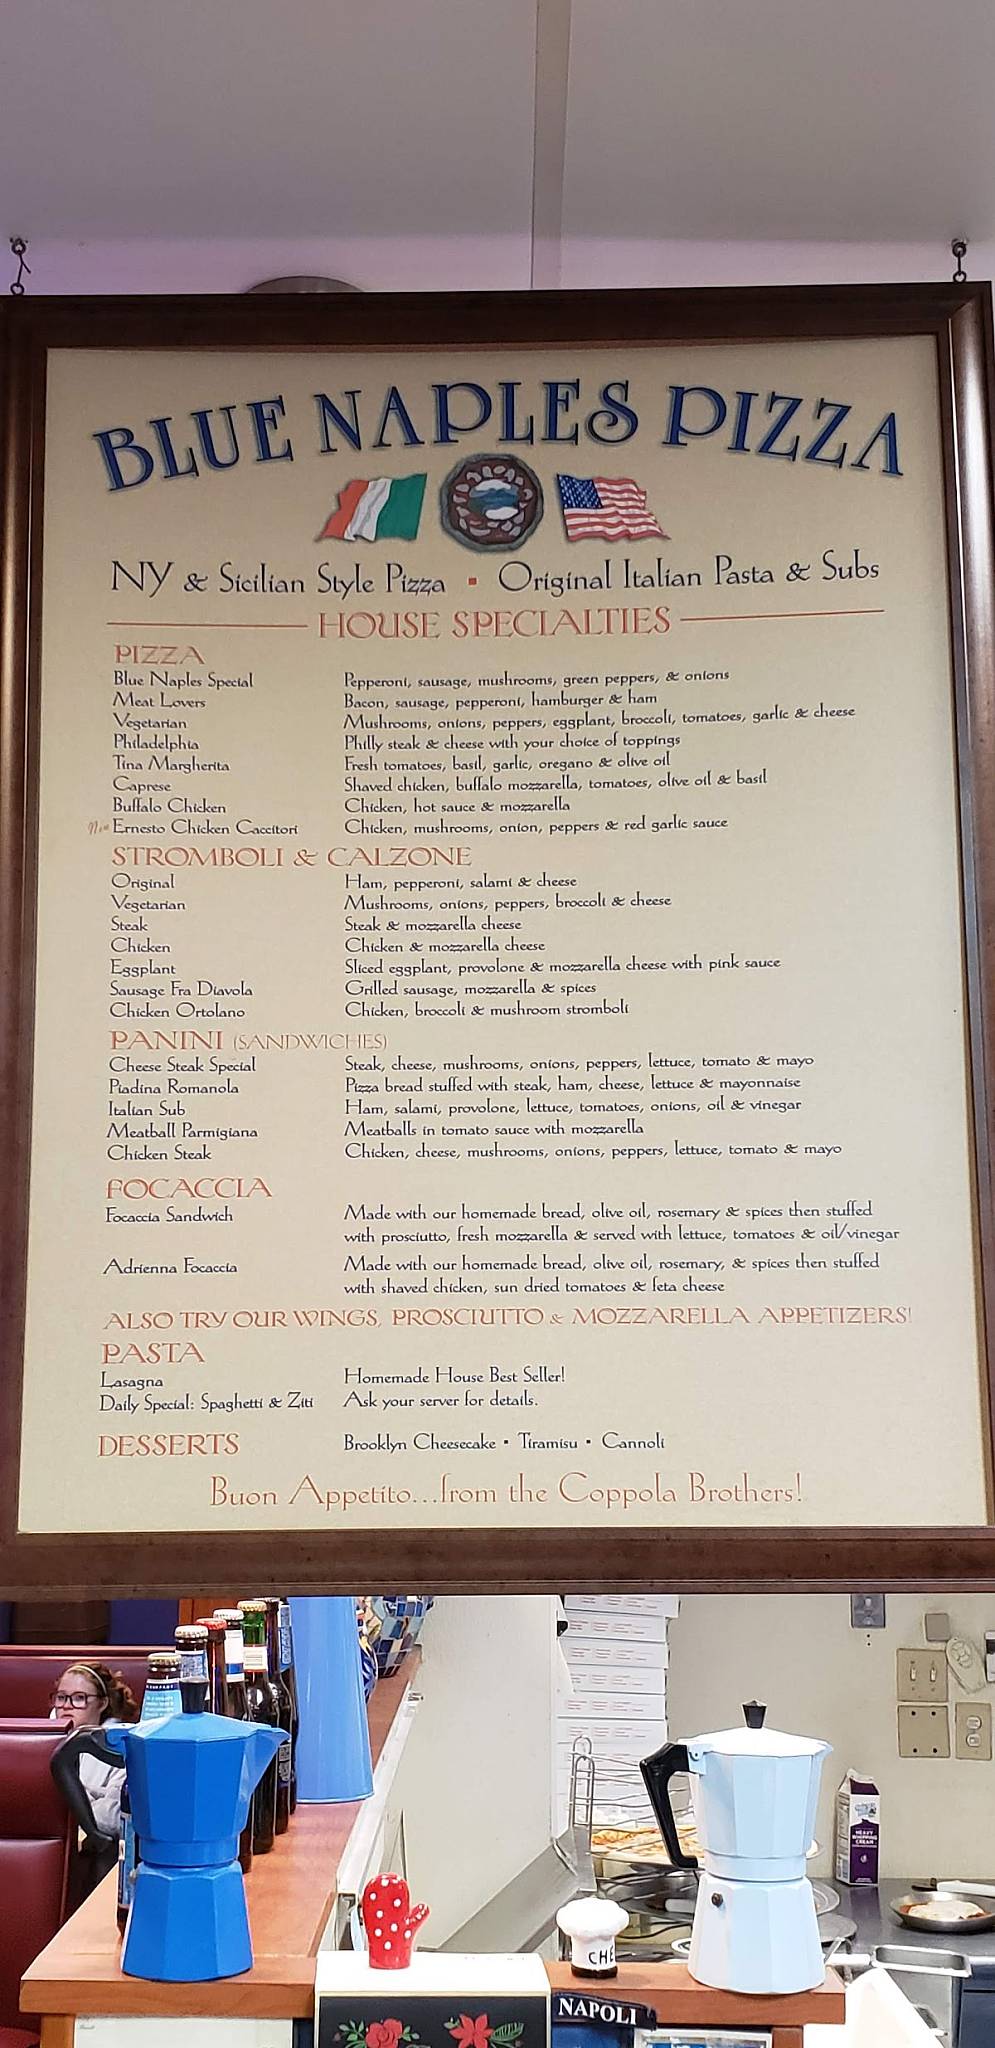 BLUE NAPLES PIZZA
NY & Sicilian Style Pizza ▪ Original Italian Pasta & Subs
HOUSE SPECIALTIES
PIZZA
Blue Naples Special Pepperoni, sausage, mushrooms, green peppers, & onions
Meat Lovers Bacon, sausage, pepperoni, hamburger & ham
Vegetarian Mushrooms, onions, peppers, eggplant, broccoli, tomatoes, garlic & cheese
Philadelphia Philly steak & cheese with your choice of toppings
Tina Margherita Fresh tomatoes, basil, garlic, oregano & olive oil
Caprese Shaved chicken, buffalo mozzarella, tomatoes, olive oil & basil
Buffalo Chicken Chicken, hot sauce & mozzarella
New Ernesto Chicken Caccitori Chicken, mushrooms, onion, peppers & red garlic sauce
STROMBOLI & CALZONE
Original Ham, pepperoni, salami & cheese
Vegetarian Mushrooms, onions, peppers, broccoli & cheese
Steak Steak & mozzarella cheese
Chicken Chicken & mozzarella cheese
Eggplant Sliced eggplant, provolone & mozzarella cheese with pink sauce
Sausage Fra Diavola Grilled sausage, mozzarella & spices
Chicken Ortolano Chicken, broccoli & mushroom stromboli
PANINI (SANDWICHES)
Cheese Steak Special Steak, cheese, mushrooms, onions, peppers, lettuce, tomato & mayo
Piadina Romanola Pizza bread stuffed with steak, ham, cheese, lettuce & mayonnaise
Italian Sub Ham, salami, provolone, lettuce, tomatoes, onions, oil & vinegar
Meatball Parmigiana Meatballs in tomato sauce with mozzarella
Chicken Steak Chicken, cheese, mushrooms, onions, peppers, lettuce, tomato & mayo
FOCACCIA
Focaccia Sandwich Made with our homemade bread, olive oil, rosemary & spices then stuffed
with prosciutto, fresh mozzarella & served with lettuce, tomatoes & oil/vinegar
Adrienna Focaccia Made with our homemade bread, olive oil, rosemary, & spices then stuffed
with shaved chicken, sun dried tomatoes & feta cheese
ALSO TRY OUR WINGS, PROSCIUTTO & MOZZARELLA APPETIZERS!
PASTA
Lasagna Homemade House Best Seller!
Daily Special: Spaghetti & Ziti Ask your server for details.
DESSERTS Brooklyn Cheesecake ▪ Tiramisu ▪ Cannoli
Buon Appetito...from the Coppola Brothers!
HEAVY
WHIPPING
CREAM
CHE
NAPOLI